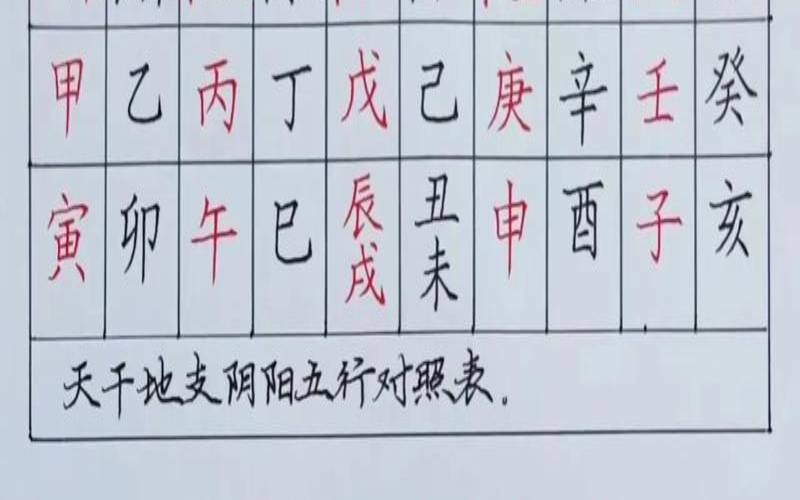 甲 乙 丙 丁 戊 己 庚 辛 壬 癸
寅 卯 午 巳 辰戌 丑未 申 酉 子 亥
天干地支阴阳五行对照表.